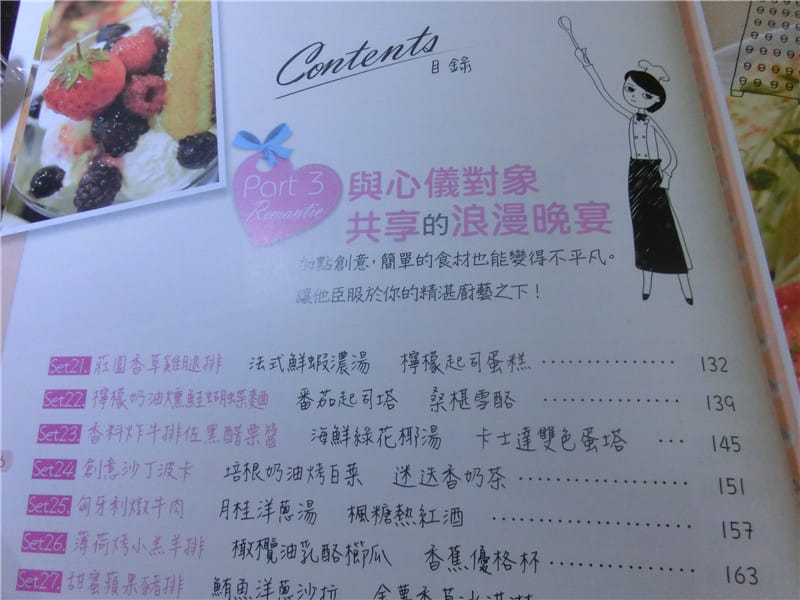 Contents
目錄
Part 3
Romantic
與心儀對象
共享的浪漫晚宴
加點創意,簡單的食材也能變得不平凡。
讓他臣服於你的精湛廚藝之下!
Set21. 莊園香草雞腿排 法式鮮蝦濃湯 檸檬起司蛋糕 ················ 132
Set22. 檸檬奶油燻鮭蝴蝶麵 番茄起司塔 桑椹雪酪 ················ 139
Set23. 香料炸牛排佐黑醋栗醬 海鮮綠花椰湯 卡士達雙色蛋塔 ··· 145
Set24. 創意沙丁波卡 培根奶油烤白菜 迷迭香奶茶 ·················· 151
Set25. 匈牙利燉牛肉 月桂洋蔥湯 楓糖熱紅酒 ···················· 157
Set26. 薄荷烤小羔羊排 橄欖油乳酪櫛瓜 香蕉優格杯 ·············· 163
Set27. 甜蜜蘋果豬排 鮪魚洋蔥沙拉